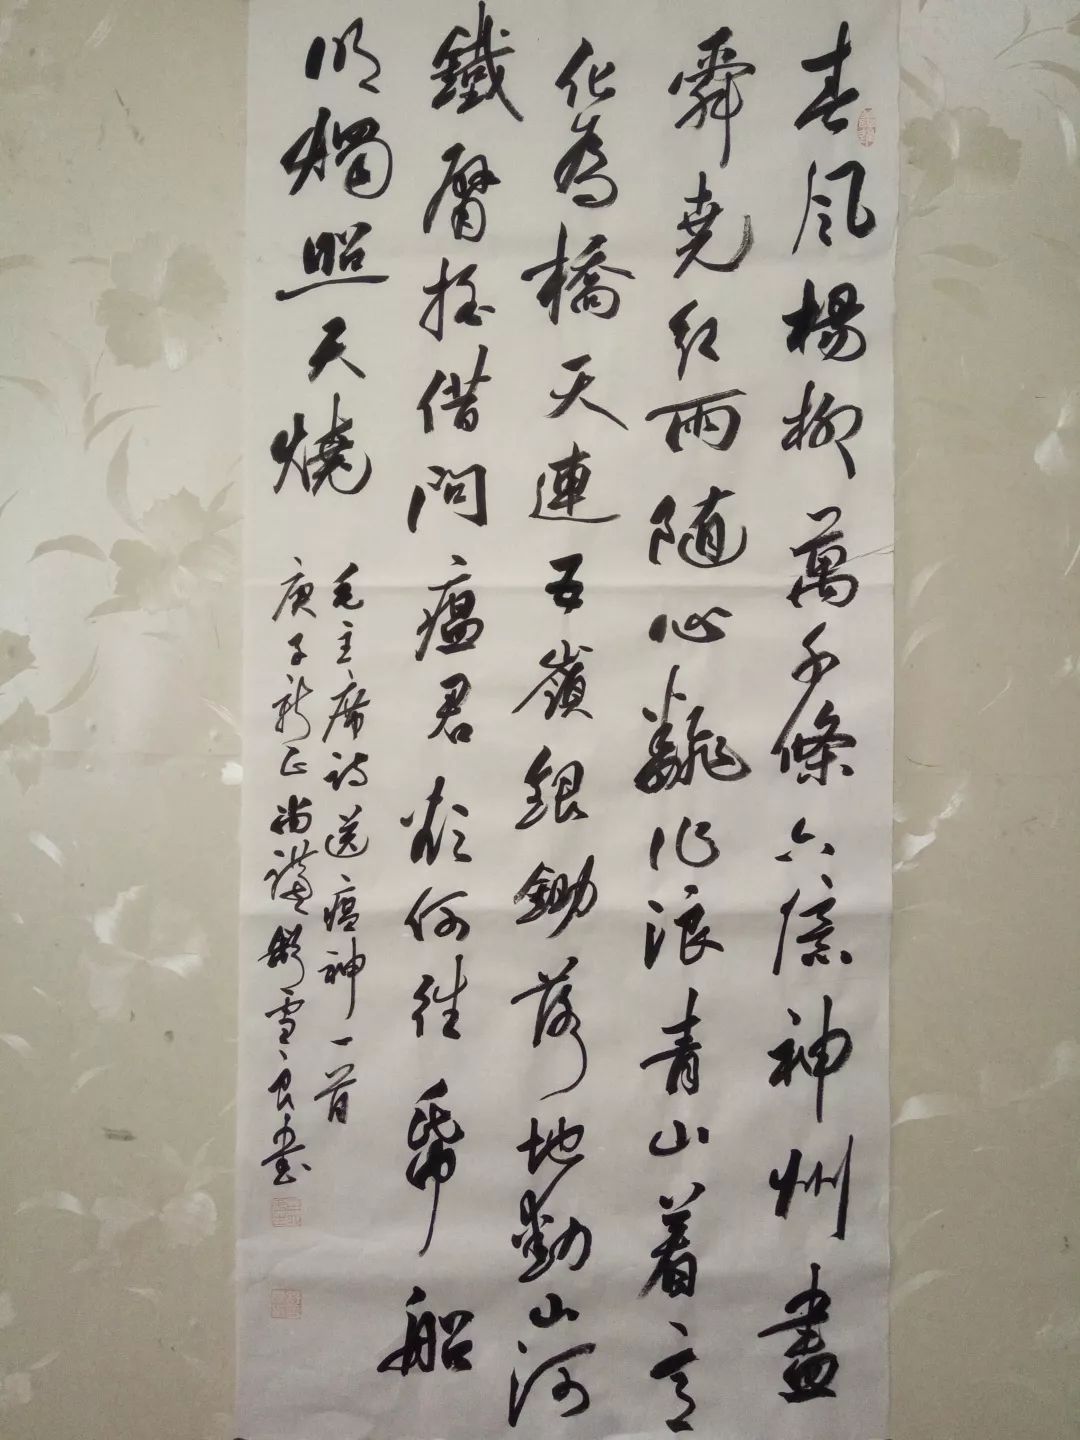 春风楊柳萬千條六億神州盡
舜尭红雨随心飜作浪青山着意
化為橋天連五嶺銀鋤落地動山河
鐵臂摇借問瘟君欲何往帋船
明燭照天燒
毛主席詩送瘟神一首
庚子新正雪良書